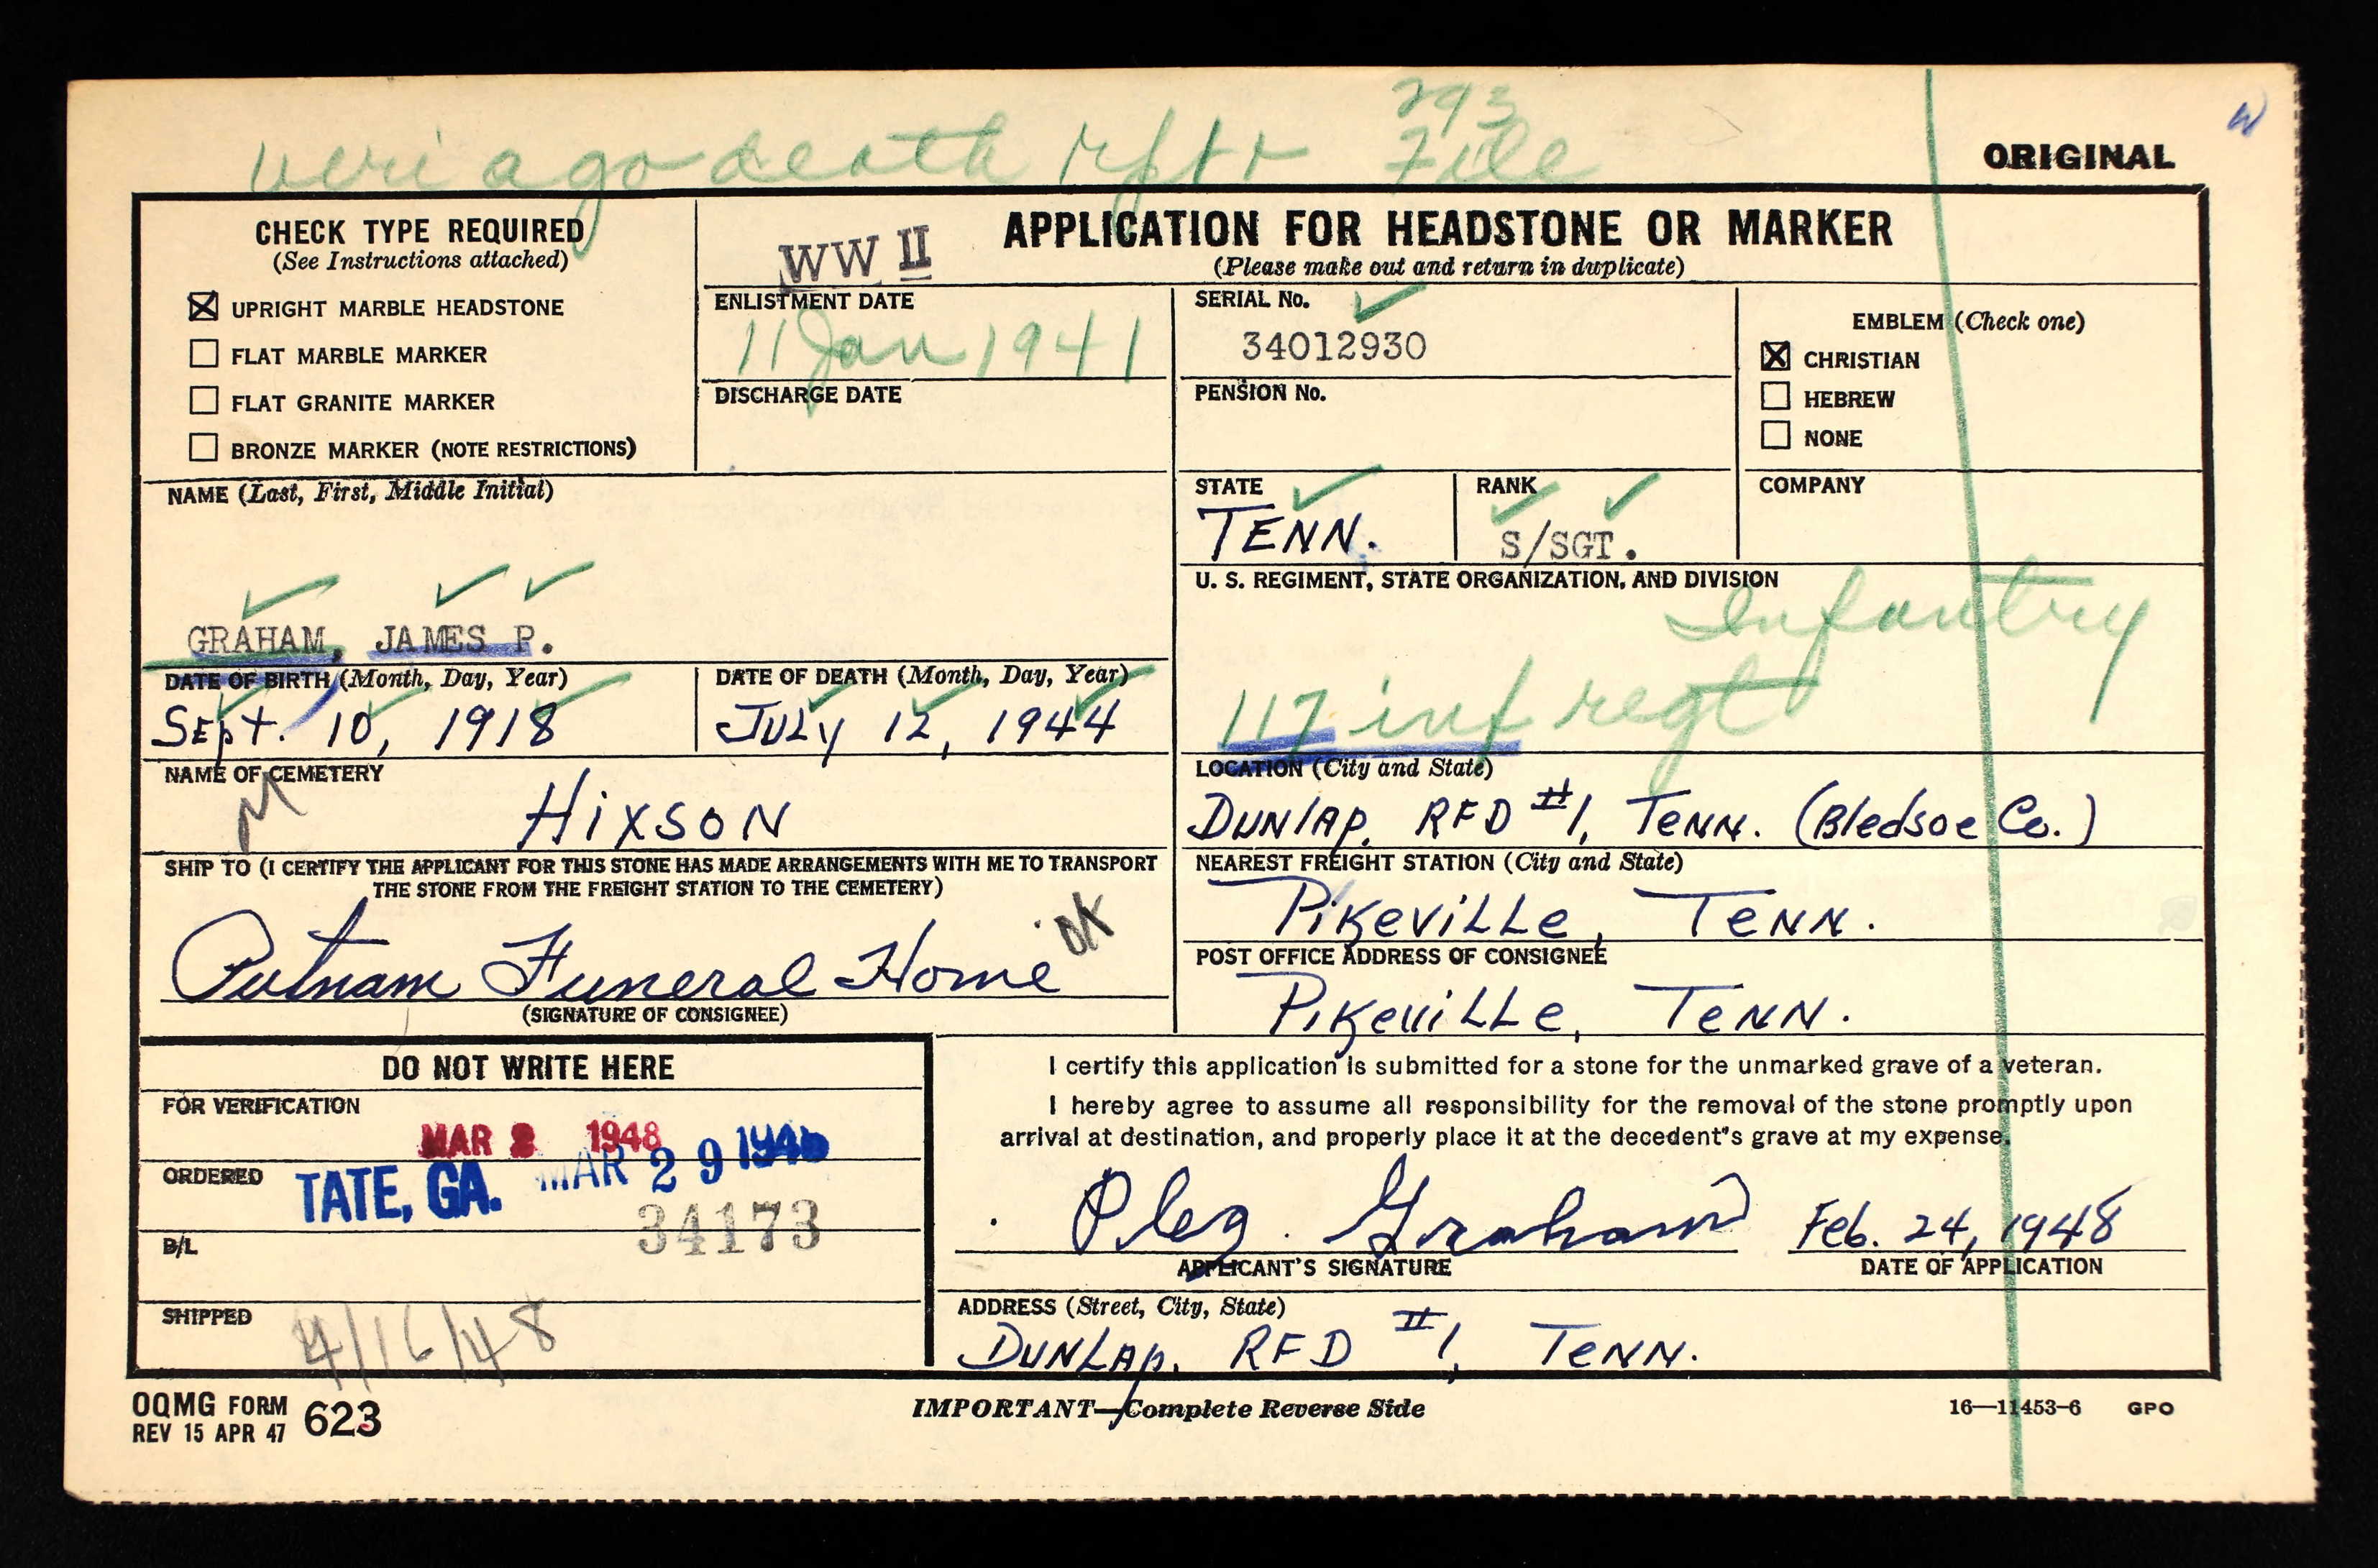 293
veri ago death rptr File
W
ORIGINAL
CHECK TYPE REQUIRED
(See Instructions attached)
☒ UPRIGHT MARBLE HEADSTONE
☐ FLAT MARBLE MARKER
☐ FLAT GRANITE MARKER
☐ BRONZE MARKER (NOTE RESTRICTIONS)
WW II
APPLICATION FOR HEADSTONE OR MARKER
(Please make out and return in duplicate)
ENLISTMENT DATE
11 Jan 1941
DISCHARGE DATE
SERIAL No.
34012930
PENSION No.
EMBLEM (Check one)
☒ CHRISTIAN
☐ HEBREW
☐ NONE
NAME (Last, First, Middle Initial)
GRAHAM, JAMES P.
STATE
TENN.
RANK
S/SGT.
COMPANY
U. S. REGIMENT, STATE ORGANIZATION, AND DIVISION
Infantry
117 inf regt
DATE OF BIRTH (Month, Day, Year)
Sept. 10, 1918
DATE OF DEATH (Month, Day, Year)
July 12, 1944
NAME OF CEMETERY
M
Hixson
LOCATION (City and State)
Dunlap, RFD #1, Tenn. (Bledsoe Co.)
SHIP TO (I CERTIFY THE APPLICANT FOR THIS STONE HAS MADE ARRANGEMENTS WITH ME TO TRANSPORT
THE STONE FROM THE FREIGHT STATION TO THE CEMETERY)
Putnam Funeral Home
OK
(SIGNATURE OF CONSIGNEE)
NEAREST FREIGHT STATION (City and State)
Pikeville, Tenn.
POST OFFICE ADDRESS OF CONSIGNEE
Pikeville, Tenn.
DO NOT WRITE HERE
FOR VERIFICATION
MAR 2 1948
ORDERED
TATE, GA. MAR 29 1948
34173
B/L
SHIPPED
4/16/48
I certify this application is submitted for a stone for the unmarked grave of a veteran.
I hereby agree to assume all responsibility for the removal of the stone promptly upon
arrival at destination, and properly place it at the decedent's grave at my expense.
Pleg. Graham
Feb. 24, 1948
APPLICANT'S SIGNATURE
DATE OF APPLICATION
ADDRESS (Street, City, State)
Dunlap, RFD #1, Tenn.
OQMG FORM 623
REV 15 APR 47
IMPORTANT—Complete Reverse Side
16—11453-6 GPO